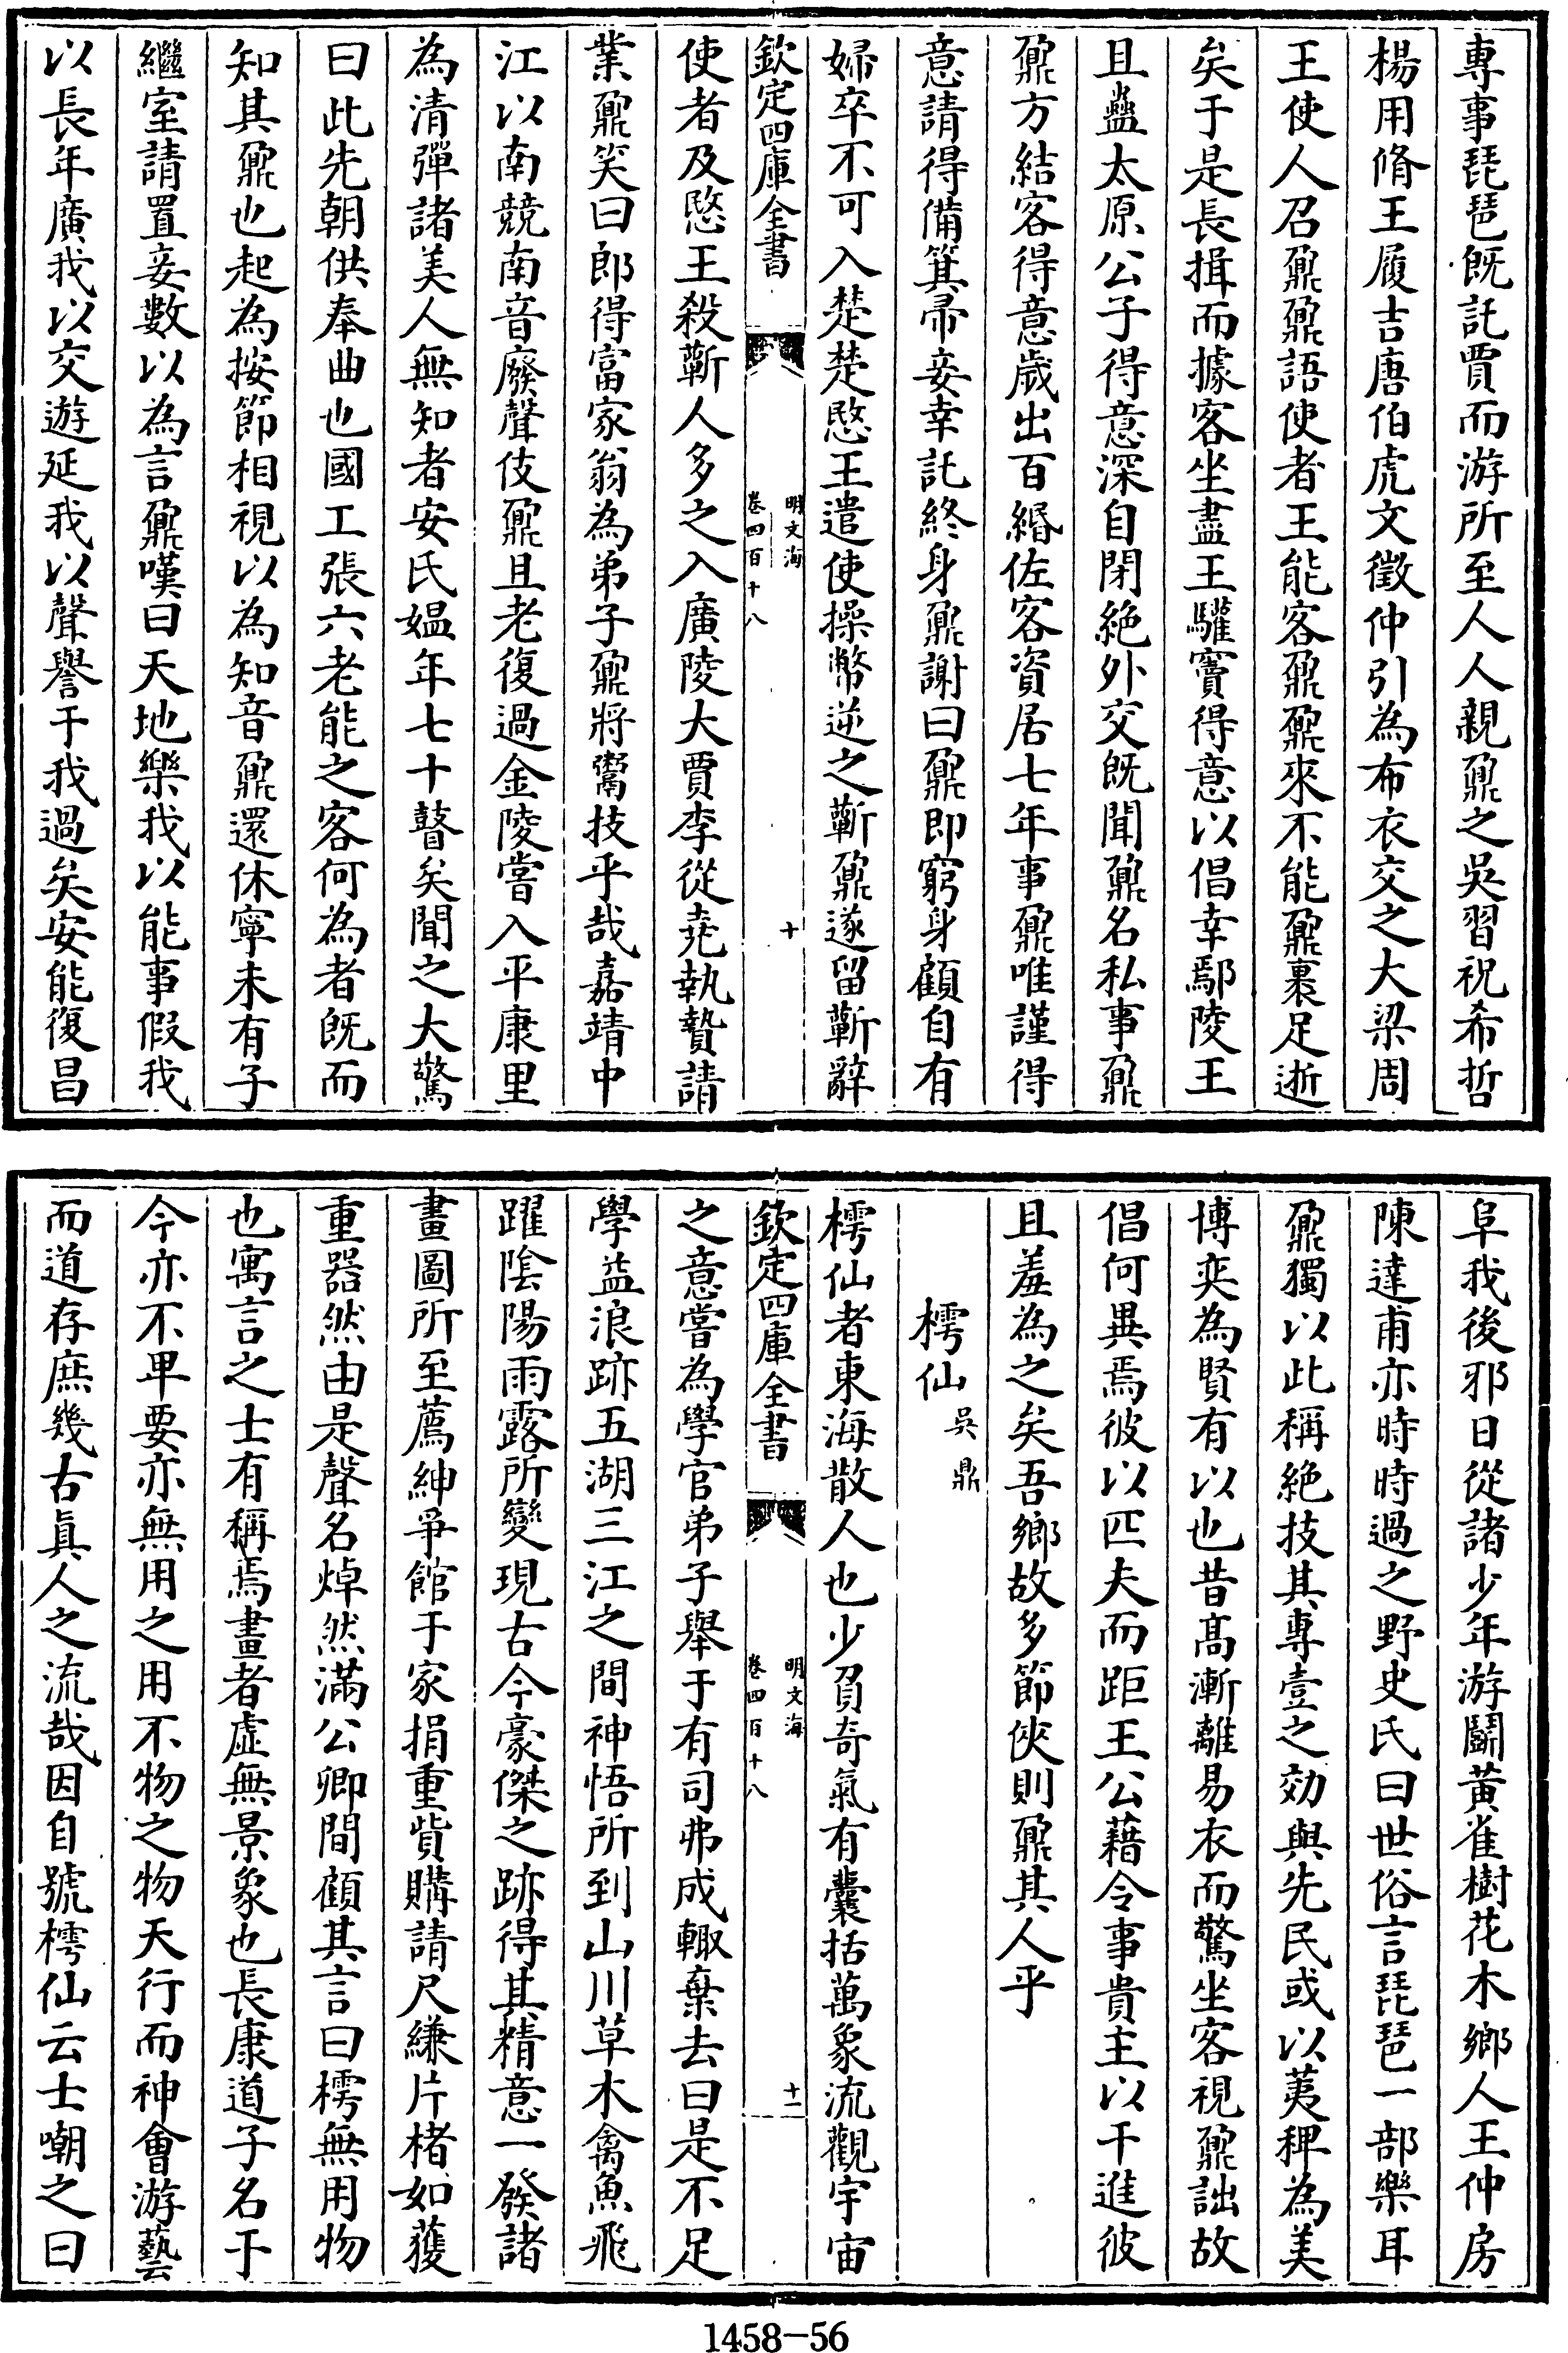 專事琵琶既託賈而游所至人人親鼐之吳習祝希哲
楊用脩王履吉唐伯虎文徵仲引為布衣交之大梁周
王使人召鼐鼐語使者王能客鼐鼐來不能鼐裹足逝
矣于是長揖而據客坐盡王驩竇得意以倡幸鄢陵王
且蠱太原公子得意深自閉絶外交既聞鼐名私事鼐
鼐方結客得意歲出百緡佐客資居七年事鼐唯謹得
意請得備箕帚妾幸託終身鼐謝曰鼐即窮身顧自有
婦卒不可入楚楚愍王遣使操幣逆之蘄鼐遂留蘄辭
欽定四庫全書
明文海
卷四百十八
十
使者及愍王殺蘄人多之入廣陵大賈李從堯執贄請
業鼐笑曰郎得富家翁為弟子鼐將鬻技乎哉嘉靖中
江以南競南音廢聲伎鼐且老復過金陵嘗入平康里
為清彈諸美人無知者安氏媼年七十瞽矣聞之大驚
曰此先朝供奉曲也國工張六老能之客何為者既而
知其鼐也起為按節相視以為知音鼐還休寧未有子
繼室請置妾數以為言鼐嘆曰天地樂我以能事假我
以長年廣我以交遊延我以聲譽于我過矣安能復昌
阜我後邪日從諸少年游鬭黃雀樹花木鄉人王仲房
陳達甫亦時時過之野史氏曰世俗言琵琶一部樂耳
鼐獨以此稱絶技其專壹之効與先民或以荑稗為美
博奕為賢有以也昔高漸離易衣而驚坐客視鼐詘故
倡何異焉彼以匹夫而距王公藉令事貴主以干進彼
且羞為之矣吾鄉故多節俠則鼐其人乎
樗仙 吳鼎
樗仙者東海散人也少負奇氣有囊括萬象流觀宇宙
欽定四庫全書
明文海
卷四百十八
十一
之意嘗為學官弟子舉于有司弗成輙棄去曰是不足
學益浪跡五湖三江之間神悟所到山川草木禽魚飛
躍陰陽雨露所變現古今豪傑之跡得其精意一發諸
畫圖所至薦紳爭館于家捐重貲購請尺縑片楮如獲
重器然由是聲名焯然滿公卿間顧其言曰樗無用物
也寓言之士有稱焉畫者虛無景象也長康道子名于
今亦不卑要亦無用之用不物之物天行而神會游藝
而道存庶幾古眞人之流哉因自號樗仙云士嘲之曰
1458-56